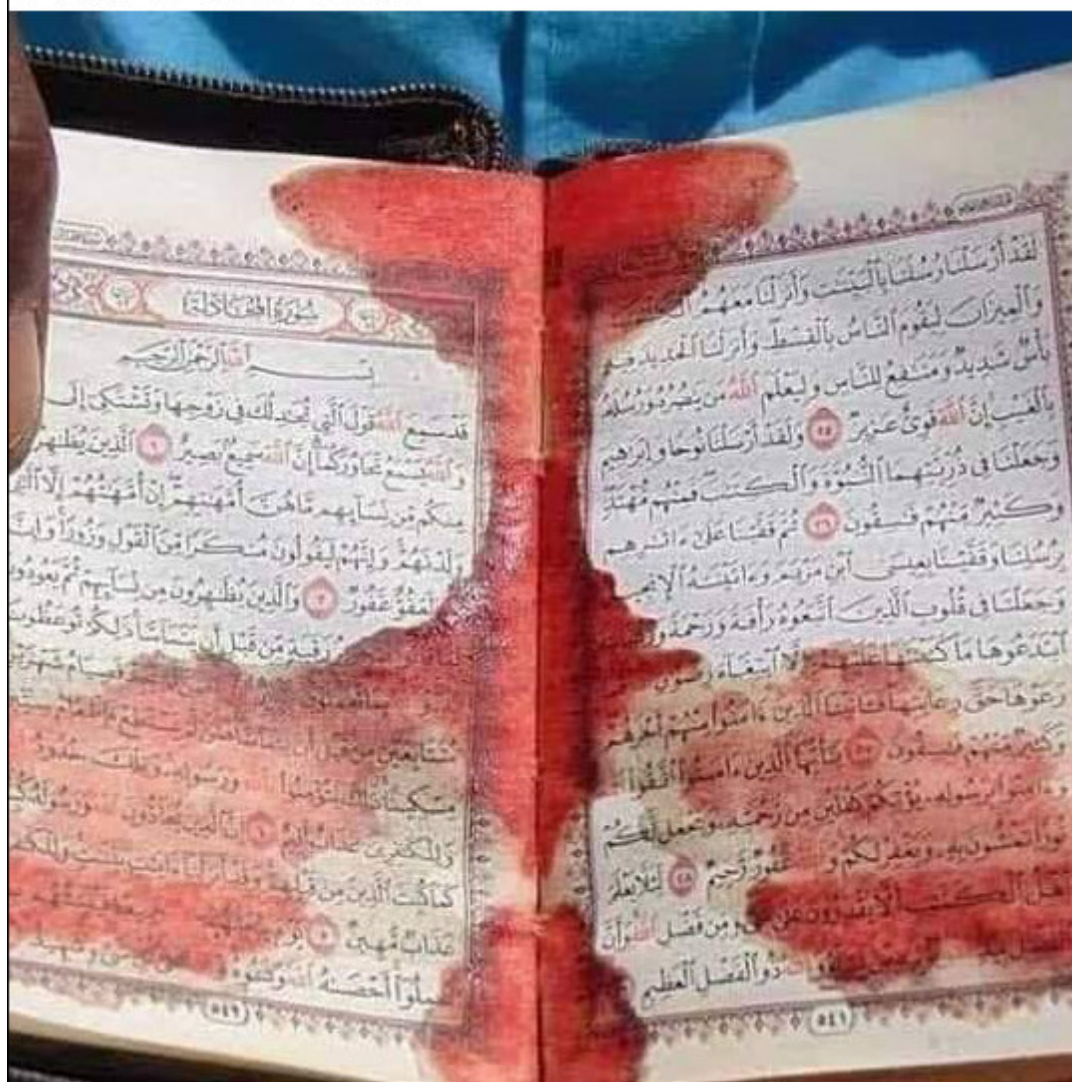 لَقَدْ أَرْسَلْنَا رُسُلَنَا بِٱلْبَيِّنَٰتِ وَأَنزَلْنَا مَعَهُمُ
وَٱلْمِيزَانَ لِيَقُومَ ٱلنَّاسُ بِٱلْقِسْطِ وَأَنزَلْنَا ٱلْحَدِيدَ فِيهِ
بَأْسٌ شَدِيدٌ وَمَنَٰفِعُ لِلنَّاسِ وَلِيَعْلَمَ ٱللَّهُ مَن يَنصُرُهُۥ وَرُسُلَهُۥ
بِٱلْغَيْبِ إِنَّ ٱللَّهَ قَوِىٌّ عَزِيزٌ ٢٥ وَلَقَدْ أَرْسَلْنَا نُوحًا وَإِبْرَٰهِيمَ
وَجَعَلْنَا فِى ذُرِّيَّتِهِمَا ٱلنُّبُوَّةَ وَٱلْكِتَٰبَ فَمِنْهُم مُّهْتَدٍ
وَكَثِيرٌ مِّنْهُمْ فَٰسِقُونَ ٢٦ ثُمَّ قَفَّيْنَا عَلَىٰٓ ءَاثَٰرِهِم
بِرُسُلِنَا وَقَفَّيْنَا بِعِيسَى ٱبْنِ مَرْيَمَ وَءَاتَيْنَٰهُ ٱلْإِنجِيلَ
وَجَعَلْنَا فِى قُلُوبِ ٱلَّذِينَ ٱتَّبَعُوهُ رَأْفَةً وَرَحْمَةً
ٱبْتَدَعُوهَا مَا كَتَبْنَٰهَا عَلَيْهِمْ إِلَّا ٱبْتِغَآءَ رِضْوَٰنِ
رَعَوْهَا حَقَّ رِعَايَتِهَا فَـَٔاتَيْنَا ٱلَّذِينَ ءَامَنُوا۟ مِنْهُمْ أَجْرَهُمْ
وَكَثِيرٌ مِّنْهُمْ فَٰسِقُونَ ٢٧ يَٰٓأَيُّهَا ٱلَّذِينَ ءَامَنُوا۟ ٱتَّقُوا۟
وَءَامِنُوا۟ بِرَسُولِهِۦ يُؤْتِكُمْ كِفْلَيْنِ مِن رَّحْمَتِهِۦ وَيَجْعَل لَّكُمْ
نُورًا تَمْشُونَ بِهِۦ وَيَغْفِرْ لَكُمْ غَفُورٌ رَّحِيمٌ ٢٨ لِّئَلَّا يَعْلَمَ
أَهْلُ ٱلْكِتَٰبِ أَلَّا يَقْدِرُونَ عَلَىٰ مِّن فَضْلِ ٱللَّهِ وَأَنَّ
ٱلْفَضْلَ ذُو ٱلْفَضْلِ ٱلْعَظِيمِ
٥٤١
سُورَةُ المُجَادلَةِ
بِسْمِ ٱللَّهِ ٱلرَّحْمَٰنِ ٱلرَّحِيمِ
قَدْ سَمِعَ ٱللَّهُ قَوْلَ ٱلَّتِى تُجَٰدِلُكَ فِى زَوْجِهَا وَتَشْتَكِىٓ إِلَى
وَٱللَّهُ يَسْمَعُ تَحَاوُرَكُمَآ إِنَّ ٱللَّهَ سَمِيعٌۢ بَصِيرٌ ١ ٱلَّذِينَ يُظَٰهِرُونَ
مِنكُم مِّن نِّسَآئِهِم مَّا هُنَّ أُمَّهَٰتِهِمْ إِنْ أُمَّهَٰتُهُمْ إِلَّا ٱلَّٰٓـِٔى
وَلَدْنَهُمْ وَإِنَّهُمْ لَيَقُولُونَ مُنكَرًا مِّنَ ٱلْقَوْلِ وَزُورًا وَإِنَّ
لَعَفُوٌّ غَفُورٌ ٢ وَٱلَّذِينَ يُظَٰهِرُونَ مِن نِّسَآئِهِمْ ثُمَّ يَعُودُونَ
رَقَبَةٍ مِّن قَبْلِ أَن يَتَمَآسَّا ذَٰلِكُمْ تُوعَظُونَ
بِمَا تَعْمَلُونَ فَصِيَامُ شَهْرَيْنِ
مُتَتَابِعَيْنِ مِن قَبْلِ أَن يَتَمَآسَّا فَمَن لَّمْ يَسْتَطِعْ فَإِطْعَامُ
مِسْكِينًا ذَٰلِكَ لِتُؤْمِنُوا۟ وَرَسُولِهِۦ وَتِلْكَ حُدُودُ
وَلِلْكَٰفِرِينَ عَذَابٌ أَلِيمٌ ٤ إِنَّ ٱلَّذِينَ يُحَآدُّونَ ٱللَّهَ وَرَسُولَهُۥ
كَمَا كُبِتَ ٱلَّذِينَ مِن قَبْلِهِمْ وَقَدْ أَنزَلْنَآ ءَايَٰتٍۭ بَيِّنَٰتٍ وَلِلْكَٰفِرِينَ
عَذَابٌ مُّهِينٌ ٥ يَوْمَ
عَمِلُوٓا۟ أَحْصَىٰهُ ٱللَّهُ وَنَسُوهُ